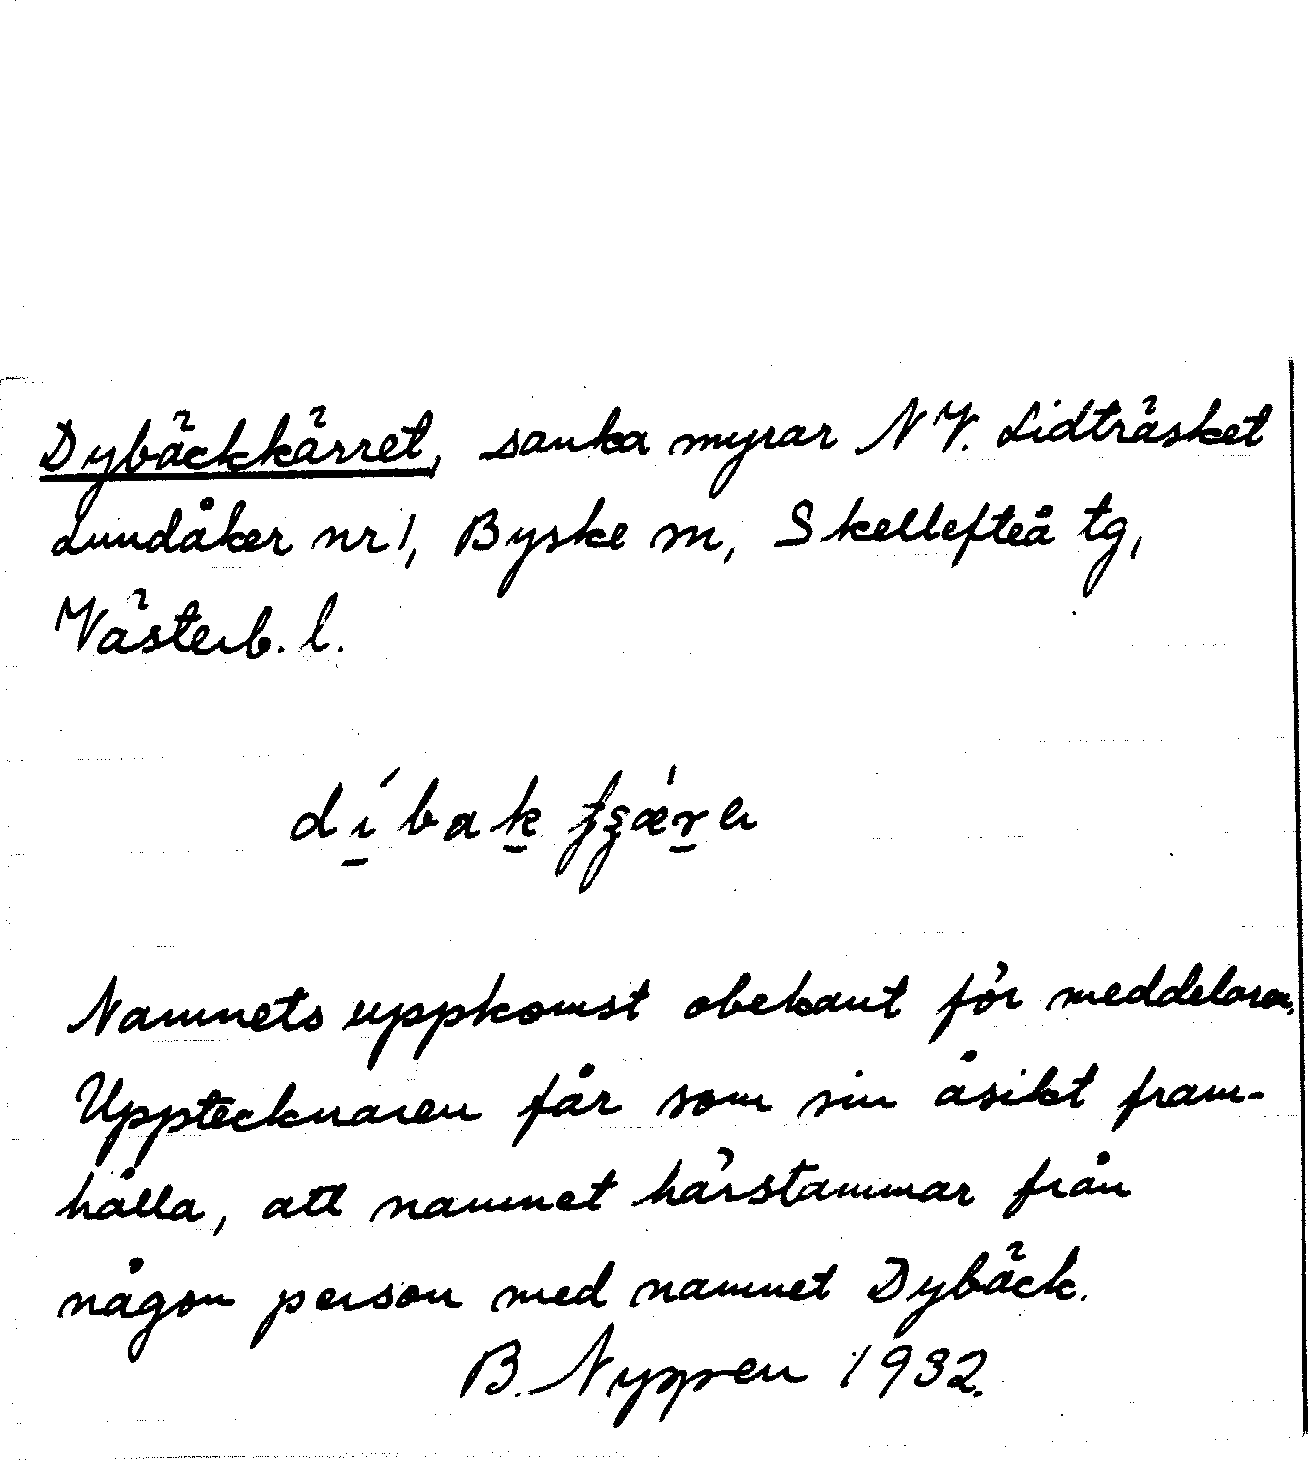 Dybäckkärret, sanka myrar NV. Lidträsket
Lundåker nr 1, Byske sn, Skellefteå tg,
Västerb. l.
Namnets uppkomst obekant för meddelaren,
Upptecknaren får som sin åsikt fram-
hålla, att namnet härstammar från
någon person med namnet Dybäck.
B. Nyppen 1932.